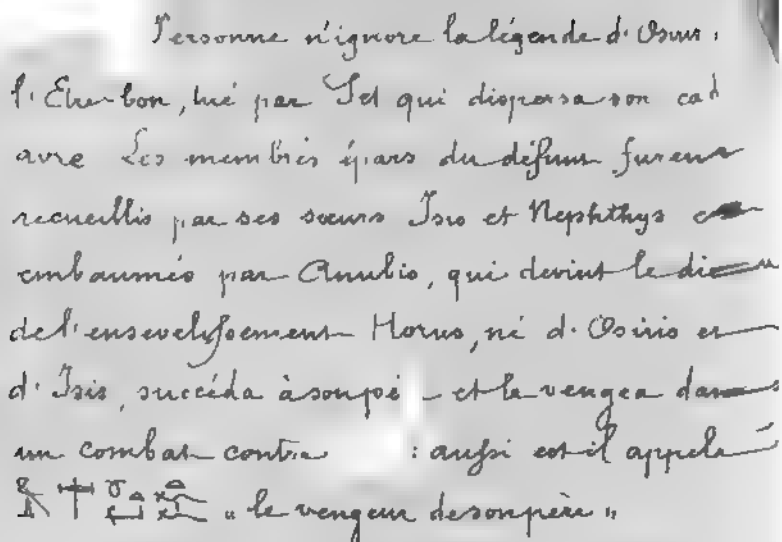 Personne n'ignore la légende d'Osiris,
l'Etre bon, tué par Set qui dispersa son cad
avre Les membres épars du défunt furent
recueillis par ses sœurs Isis et Nephthys et
embaumés par Anubis, qui devint le dieu
de l'ensevelissement Horus, né d'Osiris et
d'Isis, succéda à son pè et le vengea dans
un combat contre : aussi est-il appelé
« le vengeur de son père »